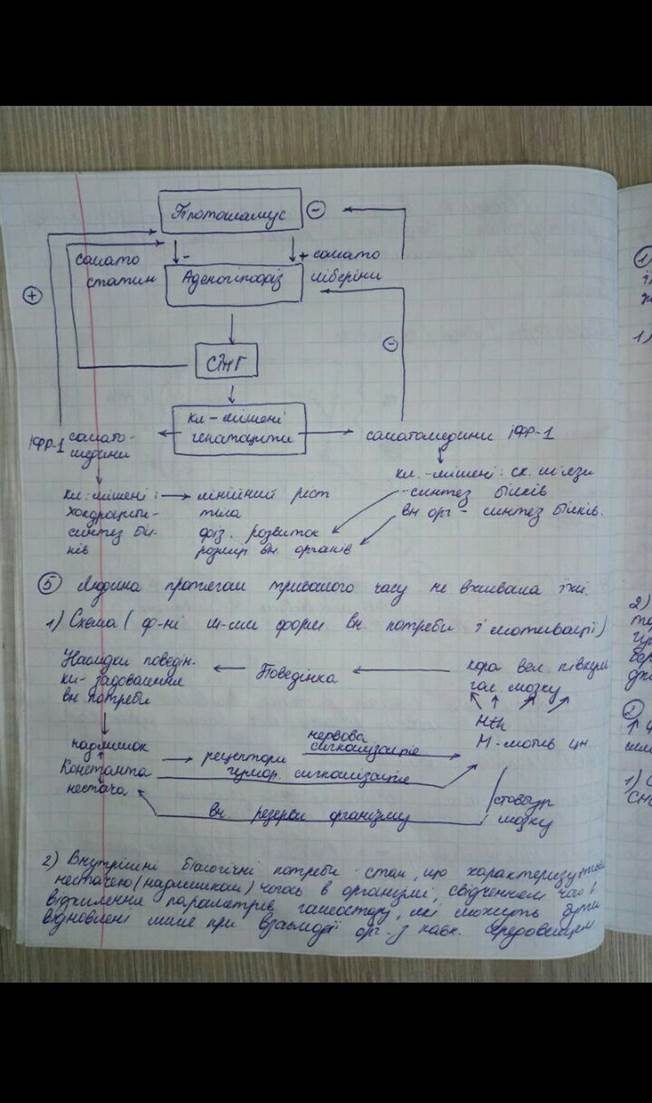 Гіпоталамус
-
сомато
статин
-
+ сомато
ліберіни
Аденогіпофіз
+
-
СТГ
кл-мішені
гепатоцити
ІФР-1 сомато-
медини
соматомедини ІФР-1
кл. мішені:
хондроцити-
синтез біл-
ків
лінійний ріст
тіла
фіз. розвиток
розмір вн. органів
кл.-мішені: ск. м'язи
-синтез білків
вн орг - синтез білків.
5 Людина протягом тривалого часу не вживала їжі.
1) Схема (ф-ні м-ми форм вн. потреби і мотивації)
Наслідки поведін-
ки-задоволення
вн потреби
Поведінка
кора вел. півкуль
гол. мозку
надлишок
Константа
нестача
рецептори
нервова
сигналізація
гумор. сигналізація
М-мотив цн.
стовбур
мозку
вн. резерви організму
2) Внутрішні біологічні потреби - стан, що характеризується
нестачею (надлишком) чогось в організмі, свідченням чого є
відхилення параметрів гомеостазу, які можуть бути
відновлені лише при взаємодії орг. з навк. середовищем.
1)
2)
2
1)